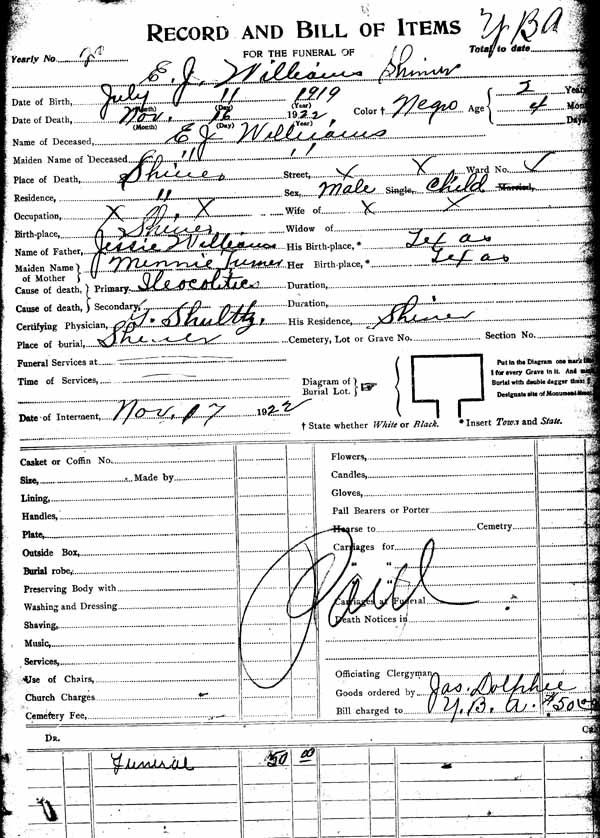 RECORD AND BILL OF ITEMS Y B A
Yearly No. FOR THE FUNERAL OF Total to date
E. J. Williams Shiner
Date of Birth, July 11 1919
(Month) (Day) (Year)
Date of Death, Nov. 16 1922 Color † Negro Age { 2 Years
4 Mont
Days
(Month) (Day) (Year)
Name of Deceased, E J Williams
Maiden Name of Deceased " "
Place of Death, Shiner Street, X X Ward No.
Residence, " Sex, Male Single, Child Married,
Occupation, X X Wife of X X
Birth-place, Shiner Widow of
Name of Father, Jessie Williams His Birth-place,* Texas
Maiden Name of Mother } Minnie Turner Her Birth-place,* Texas
Cause of death, } Primary Ileocolities Duration,
Cause of death, } Secondary, Duration,
Certifying Physician, G. Shultz, His Residence, Shiner
Place of burial, Shiner Cemetery, Lot or Grave No. Section No.
Funeral Services at
Time of Services,
Diagram of Burial Lot. } ☞
Put in the Diagram one mark
for every Grave in it. And
Burial with double dagger
Designate site of Monument
Date of Interment, Nov. 17 1922
† State whether White or Black. * Insert Town and State.
Casket or Coffin No. Flowers,
Size, Made by Candles,
Lining, Gloves,
Handles, Pall Bearers or Porter
Plate, Hearse to Cemetry
Outside Box, Carriages for
Burial robe, " "
Preserving Body with " "
Washing and Dressing Carriages at Funeral
Shaving, Death Notices in
Paid
Music,
Services,
Use of Chairs, Officiating Clergyman
Church Charges Goods ordered by Jas. Dolphee
Cemetery Fee, Bill charged to Y. B. A. $50
DR.
Funeral 50 00